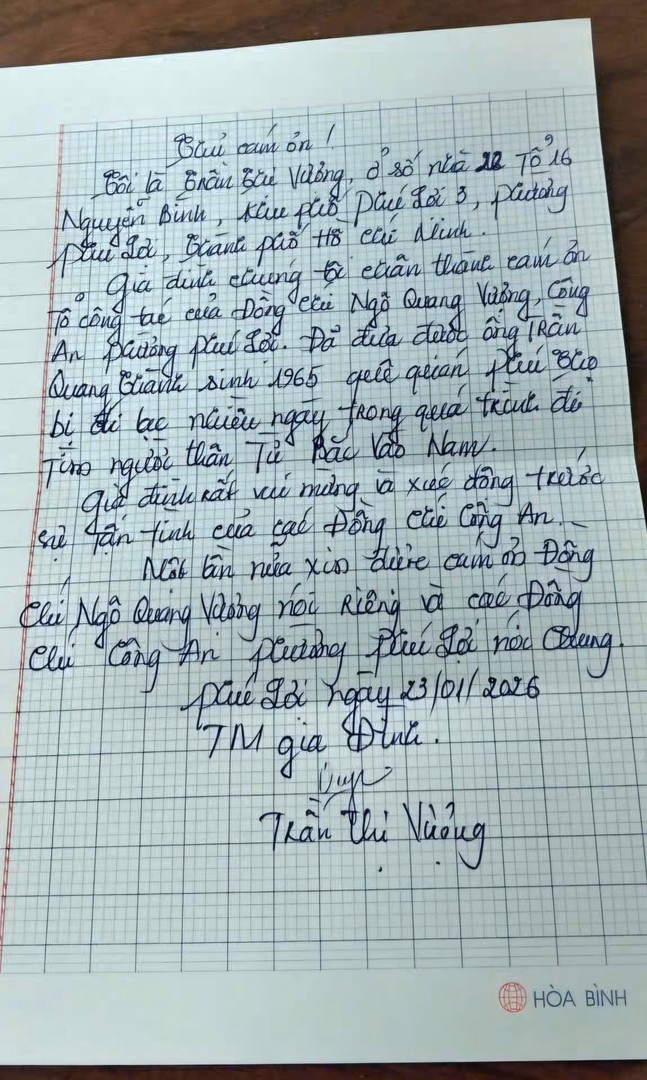 Thư cám ơn!
Tôi là Trần Thị Vượng, ở số nhà 22 Tổ 16
Nguyễn Bình, Khu phố Phú Lợi 3, phường
Phú Lợi, Thành phố Hồ Chí Minh.
Gia đình chúng tôi chân thành cám ơn
Tổ công tác của Đồng chí Ngô Quang Vượng, Công
An phường Phú Lợi. Đã đưa được ông Trần
Quang Thành sinh 1965 quê quán Phú Thọ
bị đi lạc nhiều ngày trong quá trình đi
Tìm người thân Từ Bắc Vào Nam.
Gia đình rất vui mừng và xúc động trước
sự Tận tình của các Đồng chí Công An.
Một lần nữa xin được cám ơn Đồng
chí Ngô Quang Vượng nói Riêng và các Đồng
chí Công An phường Phú Lợi nói Chung.
Phú Lợi ngày 23/01/2026
TM gia Đình.
Trần Thị Vượng
HÒA BÌNH